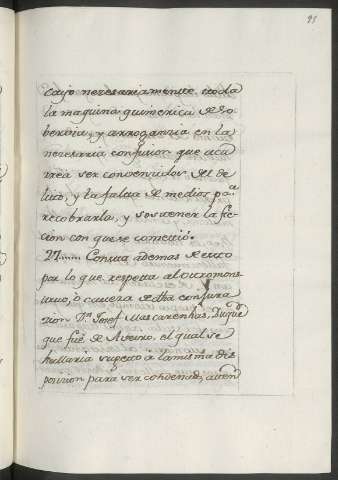 95
cayó neresariamente toda
la maquina quimerica de so
bervia, y arroganzia en la
neresaria confusion que aca
rrea ser convenzidos del de
lito, y la falta de medios pa.ª
recobrarla, y sostener la fic
cion con que se cometió.
21...... Consta ademas de esto
por lo que respecta al otro mons
truo, ò cavera de dha conjura
zion Dn. Josef Mascareñas, Duque
que fué de Aveiro, el qual se
hallaria sugeto à la misma dis
posizion para ser condenado, aten